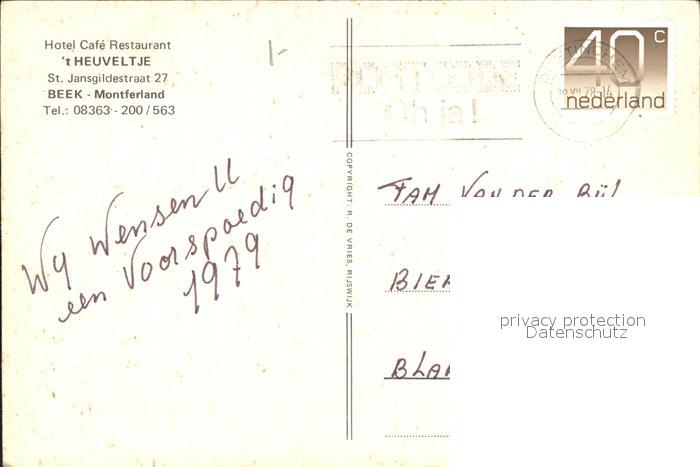 Hotel Café Restaurant
't HEUVELTJE
St. Jansgildestraat 27
BEEK - Montferland
Tel.: 08363 - 200 / 563
1-
Wy Wensen U
een Voorspoedig
1979
COPYRIGHT: R. DE VRIES, RIJSWIJK
POSTCODE
Oh ja!
40 c
nederland
FAM VAN DER BIJL
BIER
BLA
privacy protection
Datenschutz